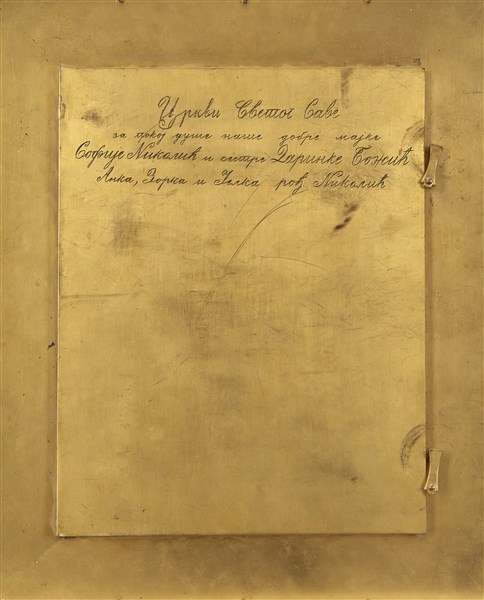 Цркви Светог Саве
за покој душе наше добре мајке
Софије Николић и сестре Даринке Божић
Анка, Зорка и Јелка рођ Николић